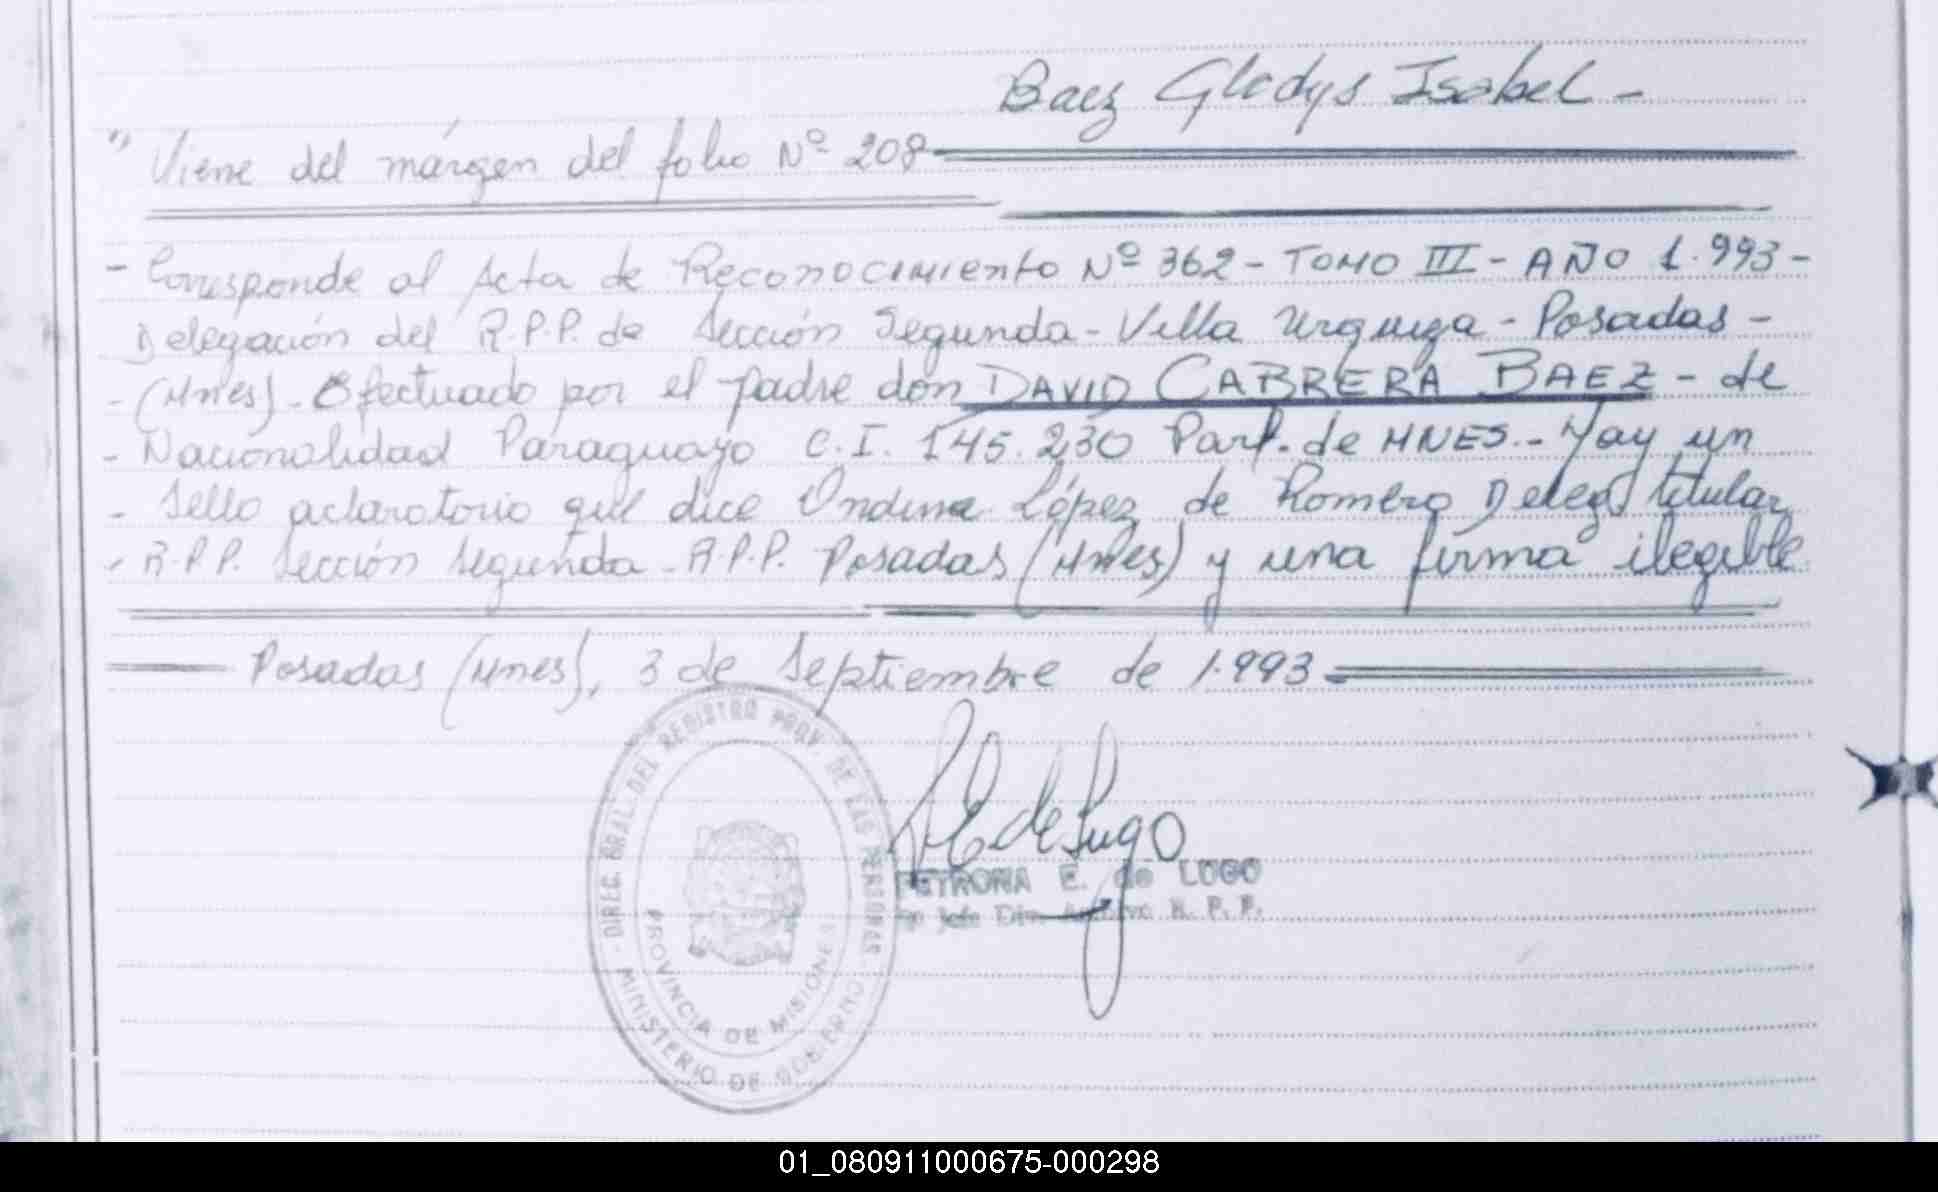 Baez Gladys Isabel -
" Viene del márgen del folio Nº 208
- Corresponde al Acta de Reconocimiento Nº 362 - TOMO III - AÑO 1.993 -
Delegación del R.P.P. de Sección Segunda - Villa Urquiza - Posadas -
- (Mnes). Efectuado por el padre don DAVID CABRERA BAEZ - de
- Nacionalidad Paraguayo C.I. 145.230 Part. de MNES. - Hay un
- Sello aclaratorio que dice Ondina López de Romero Deleg. titular
- R.P.P. Sección Segunda - R.P.P. Posadas (Mnes) y una firma ilegible
Posadas (Mnes), 3 de Septiembre de 1.993
DIREC. GRAL. DEL REGISTRO PROV. DE LAS PERSONAS
MINISTERIO DE GOBIERNO
PROVINCIA DE MISIONES
de Lugo
PETRONA E. de LUGO
Jefe Archivo R. P. P.
01_080911000675-000298